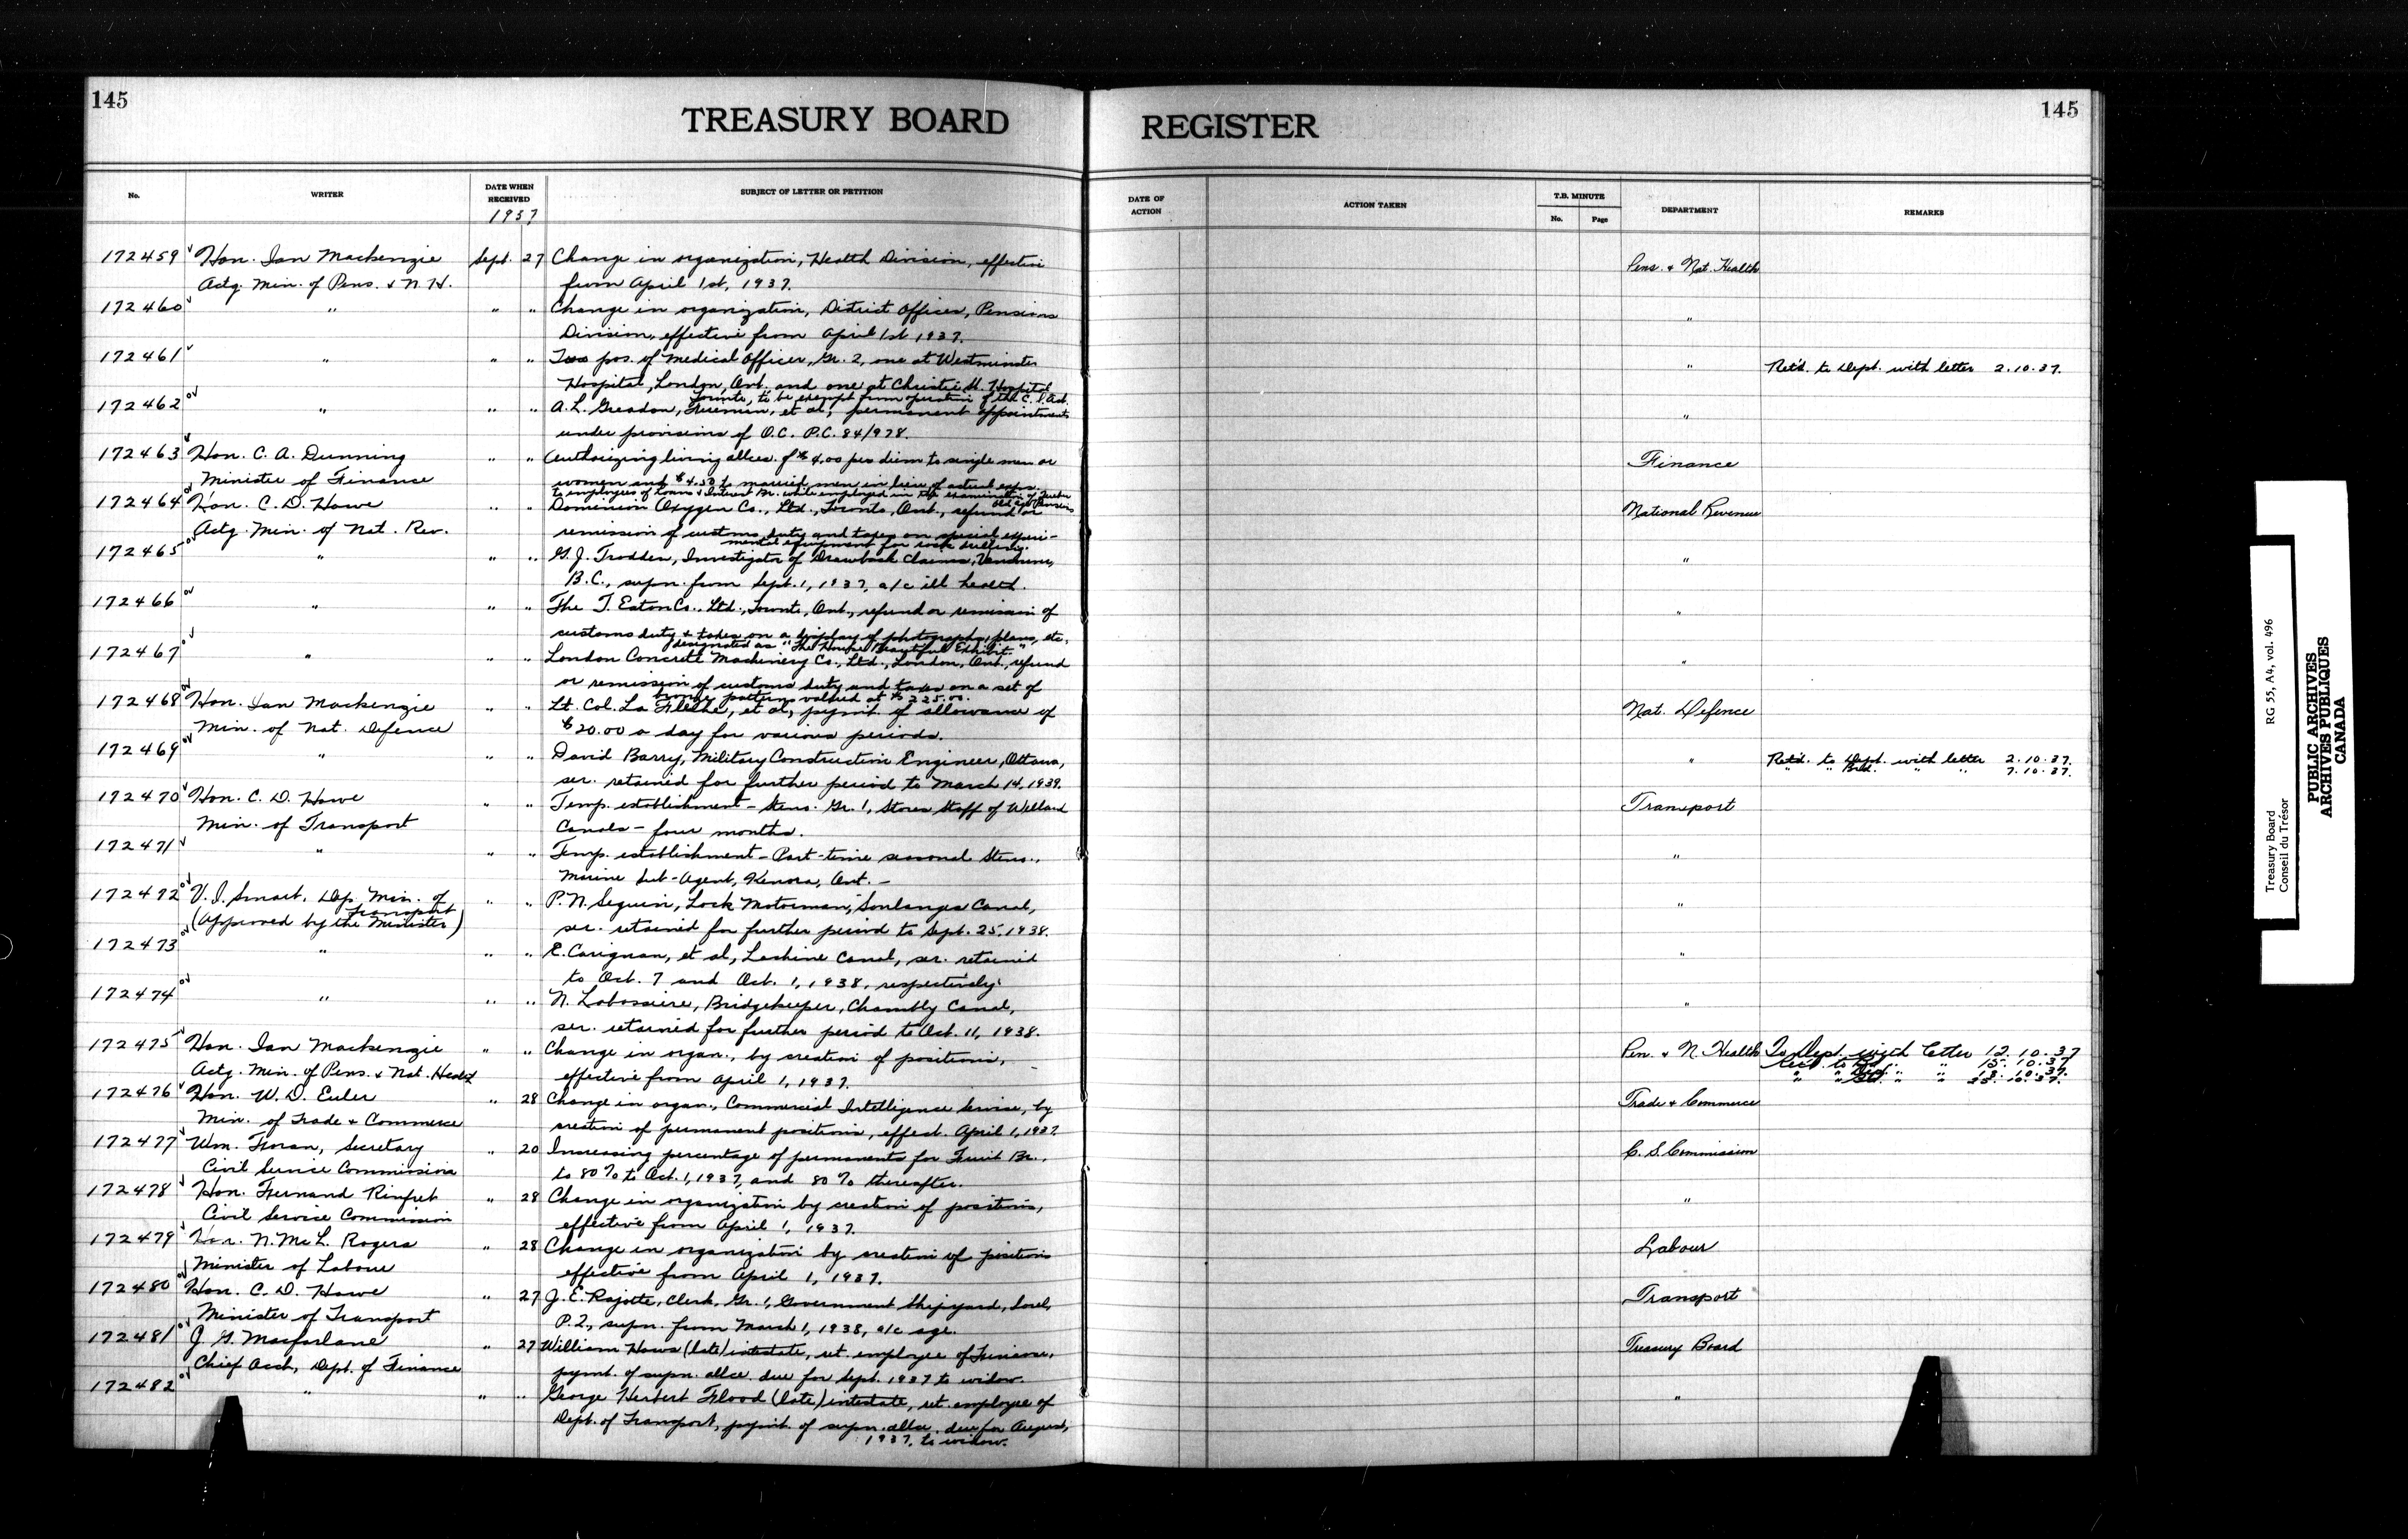 145
145
TREASURY BOARD REGISTER
No. WRITER DATE WHEN RECEIVED SUBJECT OF LETTER OR PETITION DATE OF ACTION ACTION TAKEN T.B. MINUTE No. Page DEPARTMENT REMARKS
1937
172459 Hon. Ian Mackenzie Sept. 27 Change in organization, Health Division, effective Pens. & Nat. Health
Actg. Min. of Pens. & N.H. from April 1st, 1937.
172460 " " " Change in organization, District Offices, Pensions "
Division, effective from April 1st 1937.
172461 " " " Two pos. of Medical Officer, Gr. 2, one at Westminster " Ret'd. to Dept. with letter 2.10.37.
Hospital, London, Ont. and one at Christie St. Hospital
Toronto, to be exempt from operation of the C.S. Act.
172462 " " " A. L. Greadon, Fireman, et al, permanent appointments "
under provisions of O.C. P.C. 84/978.
172463 Hon. C. A. Dunning " " Authorizing living allces. of $4.00 per diem to single men or Finance
Minister of Finance women and $4.50 to married men in lieu of actual exps.
to employees of Loans & Interest Br. while employed in the examination of Quebec
Old Age Pensions
172464 Hon. C. D. Howe " " Dominion Oxygen Co., Ltd., Toronto, Ont., refund or National Revenue
Actg. Min. of Nat. Rev. remission of customs duty and taxes on special experi-
mental equipment for rock drilling.
172465 " " " G. J. Trodden, Investigator of Drawback Claims, Vancouver, "
B.C., supn. from Sept. 1, 1937, a/c ill health.
172466 " " " The T. Eaton Co., Ltd., Toronto, Ont., refund or remission of "
customs duty & taxes on a display of photographs, plans, etc.,
designated as "The House Beautiful Exhibit."
172467 " " " London Concrete Machinery Co., Ltd., London, Ont., refund "
or remission of customs duty and taxes on a set of
bronze patterns valued at $225.00.
172468 Hon. Ian Mackenzie " " Lt. Col. La Flèche, et al, paymt. of allowance of Nat. Defence
Min. of Nat. Defence $20.00 a day for various periods.
172469 " " " David Barry, Military Construction Engineer, Ottawa, " Ret'd. to Dept. with letter 2.10.37.
ser. retained for further period to March 14, 1939. " " Brd. " " 7.10.37.
172470 Hon. C. D. Howe " " Temp. establishment - Steno. Gr. 1, Stores Staff of Welland Transport
Min. of Transport Canals - four months.
172471 " " " Temp. establishment - Part-time seasonal Steno., "
Marine Sub-Agent, Kenora, Ont. -
172472 V. I. Smart, Dep. Min. of " " P. N. Seguin, Lock Motorman, Soulanges Canal, "
Transport
(Approved by the Minister) ser. retained for further period to Sept. 25, 1938.
172473 " " " E. Carignan, et al, Lachine Canal, ser. retained "
to Oct. 7 and Oct. 1, 1938, respectively.
172474 " " " N. Labossiere, Bridgekeeper, Chambly Canal, "
ser. retained for further period to Oct. 11, 1938.
172475 Hon. Ian Mackenzie " " Change in organ., by creation of positions, Pen. & N. Health To Dept. with letter 12.10.37
Actg. Min. of Pens. & Nat. Health effective from April 1, 1937. Rec'd. to 15.10.37
" " " " 18.10.37.
" " " " 25.10.37.
172476 Hon. W. D. Euler " 28 Change in organ., Commercial Intelligence Service, by Trade & Commerce
Min. of Trade & Commerce creation of permanent positions, effect. April 1, 1937.
172477 Wm. Foran, Secretary " 20 Increasing percentage of permanents for Fruit Br., C. S. Commission
Civil Service Commission to 80% to Oct. 1, 1937, and 80% thereafter.
172478 Hon. Fernand Rinfret " 28 Change in organization by creation of positions, "
Civil Service Commission effective from April 1, 1937.
172479 Hon. N. McL. Rogers " 28 Change in organization by creation of positions Labour
Minister of Labour effective from April 1, 1937.
172480 Hon. C. D. Howe " 27 J. E. Rajotte, Clerk, Gr. 1, Government Shipyard, Sorel, Transport
Minister of Transport P.Q., supn. from March 1, 1938, a/c age.
172481 J. G. Macfarlane " 27 William Hows (late) intestate, ret. employee of Finance, Treasury Board
Chief Acct., Dept. of Finance paymt. of supn. allce. due for Sept. 1937 to widow.
172482 " " " George Herbert Flood (late) intestate, ret. employee of "
Dept. of Transport, paymt. of supn. allce. due for August,
1937, to widow.
Treasury Board RG 55, A4, vol. 496
Conseil du Trésor
PUBLIC ARCHIVES
ARCHIVES PUBLIQUES
CANADA